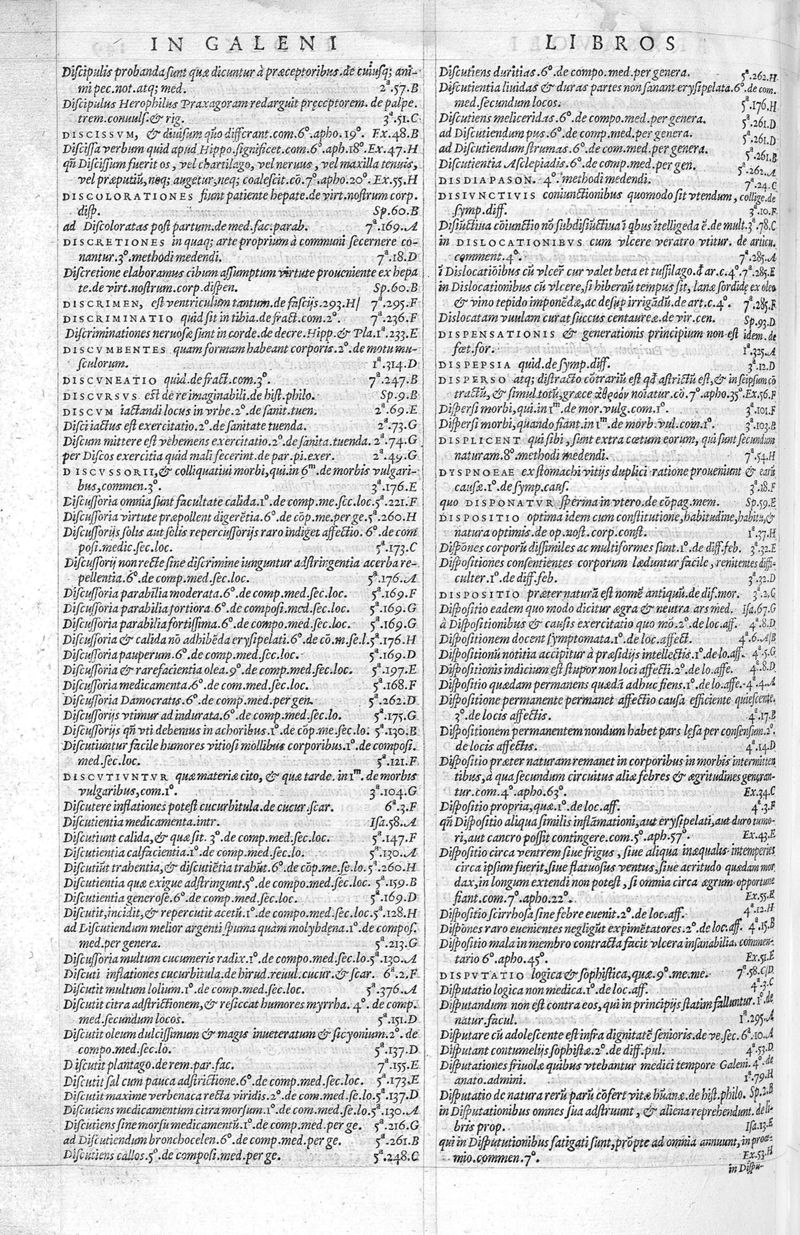 IN GALENI
Discipulis probanda sunt quæ dicuntur à præceptoribus.de cuiusq; ani-
mi pec.not.atq; med. 2ª.57.B
Discipulus Herophilus Praxagoram redarguit pręceptorem. de palpe.
trem.conuuls.& rig. 3ª.51.C
DISCISSVM, & diuisum quo differant.com.6º.apho.19º. Ex.48.B
Discissa verbum quid apud Hippo.significet.com.6º.aph.18º.Ex.47.H
qñ Discissum fuerit os, vel chartilago, vel neruus, vel maxilla tenuis,
vel præputiū, neq; augetur, neq; coalescit.cō.7º.apho.20º.Ex.55.H
DISCOLORATIONES fiunt patiente hepate.de virt.nostrum corp.
disp. Sp.60.B
ad Discoloratas post partum.de med.fac.parab. 7ª.169.A
DISCRETIONES in quaq; arte proprium à communi secernere co-
nantur.3º.methodi medendi. 7ª.18.D
Discretione elaboramus cibum assumptum virtute proueniente ex hepa
te.de virt.nostrum corp.dispen. Sp.60.B
DISCRIMEN, est ventriculum tantum.de fascijs.293.H/ 7ª.295.F
DISCRIMINATIO quid sit in tibia.de fract.com.2º. 7ª.236.F
Discriminationes neruosæ sunt in corde.de decre.Hipp.& Pla.1ª.233.E
DISCVMBENTES quam formam habeant corporis.2º.de motu mu-
sculorum. 1ª.314.D
DISCVNEATIO quid.de fract.com.3º. 7ª.247.B
DISCVRSVS est de re imaginabili.de hist.philo. Sp.9.B
DISCVM iactandi locus in vrbe.2º.de sanit.tuen. 2ª.69.E
Disci iactus est exercitatio.2º.de sanitate tuenda. 2ª.73.G
Discum mittere est vehemens exercitatio.2º.de sanita.tuenda.2ª.74.G
per Discos exercitia quid mali fecerint.de par.pi.exer. 2ª.49.G
DISCVSSORII, & colliquatiui morbi, qui.in 6ᵐ.de morbis vulgari-
bus, commen.3º. 3ª.176.E
Discussoria omnia sunt facultate calida.1º.de comp.me.sec.loc.5ª.221.F
Discussoria virtute præpollent digerētia.6º.de cōp.me.per ge.5ª.260.H
Discussorijs solis aut solis repercussorijs raro indiget affectio.6º.de com
posi.medic.sec.loc. 5ª.173.C
Discussorij non recte sine discrimine iunguntur adstringentia acerba re-
pellentia.6º.de comp.med.sec.loc. 5ª.176.A
Discussoria parabilia moderata.6º.de comp.med.sec.loc. 5ª.169.F
Discussoria parabilia fortiora.6º.de composi.med.sec.loc. 5ª.169.G
Discussoria parabilia fortissima.6º.de compo.med.sec.loc. 5ª.169.G
Discussoria & calida nō adhibēda erysipelati.6º.de cō.m.se.l.5ª.176.H
Discussoria pauperum.6º.de comp.med.sec.loc. 5ª.169.D
Discussoria & rarefacientia olea.9º.de comp.med.sec.loc. 5ª.197.E
Discussoria medicamenta.6º.de com.med.sec.loc. 5ª.168.F
Discussoria Damocratis.6º.de comp.med.per gen. 5ª.262.D
Discussorijs vtimur ad indurata.6º.de comp.med.sec.lo. 5ª.175.G
Discussorijs qñ vti debemus in achoribus.1º.de cōp.me.sec.lo. 5ª.130.B
Discutiuntur facile humores vitiosi mollibus corporibus.1º.de composi.
med.sec.loc. 5ª.121.F
DISCVTIVNTVR quæ materiæ cito, & quæ tarde. in 1ᵐ. de morbis
vulgaribus, com.1º. 3ª.104.G
Discutere inflationes potest cucurbitula.de cucur.scar. 6ª.3.F
Discutientia medicamenta.intr. Isa.58.A
Discutiunt calida, & quæ sit. 3º.de comp.med.sec.loc. 5ª.147.F
Discutientia calfacientia.1º.de comp.med.sec.lo. 5ª.130.A
Discutiūt trahentia, & discutiētia trahūt.6º.de cōp.me.se.lo.5ª.260.H
Discutientia quæ exigue adstringunt.5º.de compo.med.sec.loc. 5ª.159.B
Discutientia generose.6º.de comp.med.sec.loc. 5ª.169.D
Discutit, incidit, & repercutit acetū.1º.de compo.med.sec.loc.5ª.128.H
ad Discutiendum melior argenti spuma quàm molybdena.1º.de compos.
med.per genera. 5ª.213.G
Discussoria multum cucumeris radix.1º.de compo.med.sec.lo.5ª.130.A
Discuti inflationes cucurbitula.de hirud.reuul.cucur.& scar. 6ª.2.F
Discutit multum lolium.1º.de comp.med.sec.loc. 5ª.376.A
Discutit citra adstrictionem, & resiccat humores myrrha. 4º.de comp.
med.secundum locos. 5ª.151.D
Discutit oleum dulcissimum & magis inueteratum & sicyonium.2º.de
compo.med.sec.lo. 5ª.137.D
Discutit plantago.de rem.par.fac. 7ª.155.E
Discutit sal cum pauca adstrictione.6º.de comp.med.sec.loc. 5ª.173.E
Discutit maxime verbenaca recta viridis.2º.de com.med.sec.lo.5ª.137.D
Discutiens medicamentum citra morsum.1º.de com.med.se.lo.5ª.130.A
Discutiens sine morsu medicamentū.1º.de com.med.per ge. 5ª.216.G
ad Discutiendum bronchocelen.6º.de comp.med.per ge. 5ª.261.B
Discutiens callos.5º.de composi.med.per ge. 5ª.248.C
LIBROS
Discutiens duritias.6º.de compo.med.per genera. 5ª.262.H
Discutientia liuidas & duras partes non sanant erysipelata.6º.de com.
med.secundum locos. 5ª.176.H
Discutiens meliceridas.6º.de compo.med.per genera. 5ª.261.D
ad Discutiendum pus.6º.de comp.med.per genera. 5ª.261.D
ad Discutiendum strumas.6º.de com.med.per genera. 5ª.261.B
Discutientia Asclepiadis.6º.de comp.med.per gen. 5ª.262.A
DISDIAPASON. 4º.methodi medendi. 7ª.24.C
DISIVNCTIVIS coniunctionibus quomodo sit vtendum, collige.de
symp.diff. 3ª.10.F
Disiūctiua cōiunctio nō subdisiūctiua ī qbus ītelligeda ē.de mult.3ª.78.C
in DISLOCATIONIBVS cum vlcere veratro vtitur. de articu.
comment.4º. 7ª.285.A
ī Dislocatiōibus cū vlcer̄ cur valet beta et tussilago.d̄ ar.c.4º.7ª.285.E
in Dislocationibus cū vlcere, si hibernū tempus sit, lanæ sordidę ex oleo
& vino tepido imponēdæ, ac desup irrigādū.de art.c.4º. 7ª.285.F
Dislocatam vuulam curat succus centaureæ.de vir.cen. Sp.93.D
DISPENSATIONIS & generationis principium non est idem.de
fœt.for. 1ª.325.A
DISPEPSIA quid.de symp.diff. 3ª.12.D
DISPERSO atq; distracto cōtrariū est qd̄ astrictū est, & in seipsum cō
tractū, & simul totū, græce ἀθρόον noīatur.cō.7º.apho.35º.Ex.56.F
Dispersi morbi, qui.in 1ᵐ.de mor.vulg.com.1º. 3ª.101.F
Dispersi morbi, quando fiant.in 1ᵐ.de morb.vul.com.1º. 3ª.103.B
DISPLICENT qui sibi, sunt extra cœtum eorum, qui sunt secundum
naturam.8º.methodi medendi. 7ª.54.H
DYSPNOEAE ex stomachi vitijs duplici ratione proueniunt & earū
causæ.1º.de symp.caus. 3ª.18.F
quo DISPONATVR sperma in vtero.de cōpag.mem. Sp.59.E
DISPOSITIO optima idem cum constitutione, habitudine, habitu, &
natura optimis.de op.nost.corp.const. 1ª.37.H
Dispōnes corporū dissimiles ac multiformes sunt.1º.de diff.feb. 3ª.32.E
Dispositiones consentientes corporum læduntur facile, renitentes diffi-
culter.1º.de diff.feb. 3ª.32.D
DISPOSITIO præter naturā est nomē antiquū.de dif.mor. 3ª.2.G
Dispositio eadem quo modo dicitur ægra & neutra ars med. Isa.67.G
à Dispositionibus & causis exercitatio quo mō.2º.de loc.aff. 4ª.8.D
Dispositionem docent symptomata.1º.de loc.affect. 4ª.6.A/B
Dispositionū notitia accipitur à præsidijs intellectis.1º.de lo.aff. 4ª.5.G
Dispositionis indicium est stupor non loci affecti.2º.de lo.affe. 4ª.8.D
Dispositio quædam permanens quædā adhuc fiens.1º.de lo.affe.4ª.4.A
Dispositione permanente permanet affectio causa efficiente quiescente.
3º.de locis affectis. 4ª.17.B
Dispositionem permanentem nondum habet pars lęsa per consensum.2º.
de locis affectis. 4ª.14.D
Dispositio præter naturam remanet in corporibus in morbis intermitten
tibus, à qua secundum circuitus aliæ febres & ægritudines generan-
tur.com.4º.apho.63º. Ex.34.C
Dispositio propria, quæ.1º.de loc.aff. 4ª.3.F
qñ Dispositio aliqua similis inflāmationi, aut erysipelati, aut duro tumo-
ri, aut cancro possit contingere.com.5º.aph.57º. Ex.43.E
Dispositio circa ventrem siue frigus, siue aliqua inæqualis intemperies
circa ipsum fuerit, siue flatuosus ventus, siue acritudo quædam mor
dax, in longum extendi non potest, si omnia circa ægrum opportune
fiant.com.7º.apho.22º. Ex.55.E
Dispositio scirrhosa sine febre euenit.2º.de loc.aff. 4ª.12.H
Dispōnes raro euenientes negligūt expimētatores.2º.de loc.aff. 4ª.15.B
Dispositio mala in membro contracta facit vlcera insanabilia. commen-
tario 6º.apho.45º. Ex.51.E
DISPVTATIO logica & sophistica, quæ.9º.me.me. 7ª.58.C/D
Disputatio logica non medica.1º.de loc.aff. 4ª.3.C
Disputandum non est contra eos, qui in principijs statim falluntur.1º.de
natur.facul. 1ª.295.A
Disputare cū adolescente est infra dignitatē senioris.de ve.sec.6ª.10.A
Disputant contumelijs sophistæ.2º.de diff.pul. 4ª.53.D
Disputationes friuolæ quibus vtebantur medici tempore Galeni.4º.de
anato.admini. 1ª.79.H
Disputatio de natura rerū parū cōfert vitæ hūanæ.de hist.philo. Sp.2.B
in Disputationibus omnes sua adstruunt, & aliena reprehendunt.de li-
bris prop. Isa.13.E
qui in Disputationibus fatigati sunt, prōpte ad omnia annuunt, in proœ-
mio.commen.7º. Ex.53.H
in Dispu-